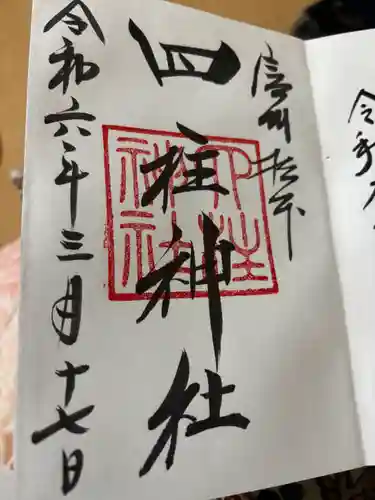 信州松本
四柱神社
四柱神社
令和六年三月十七日